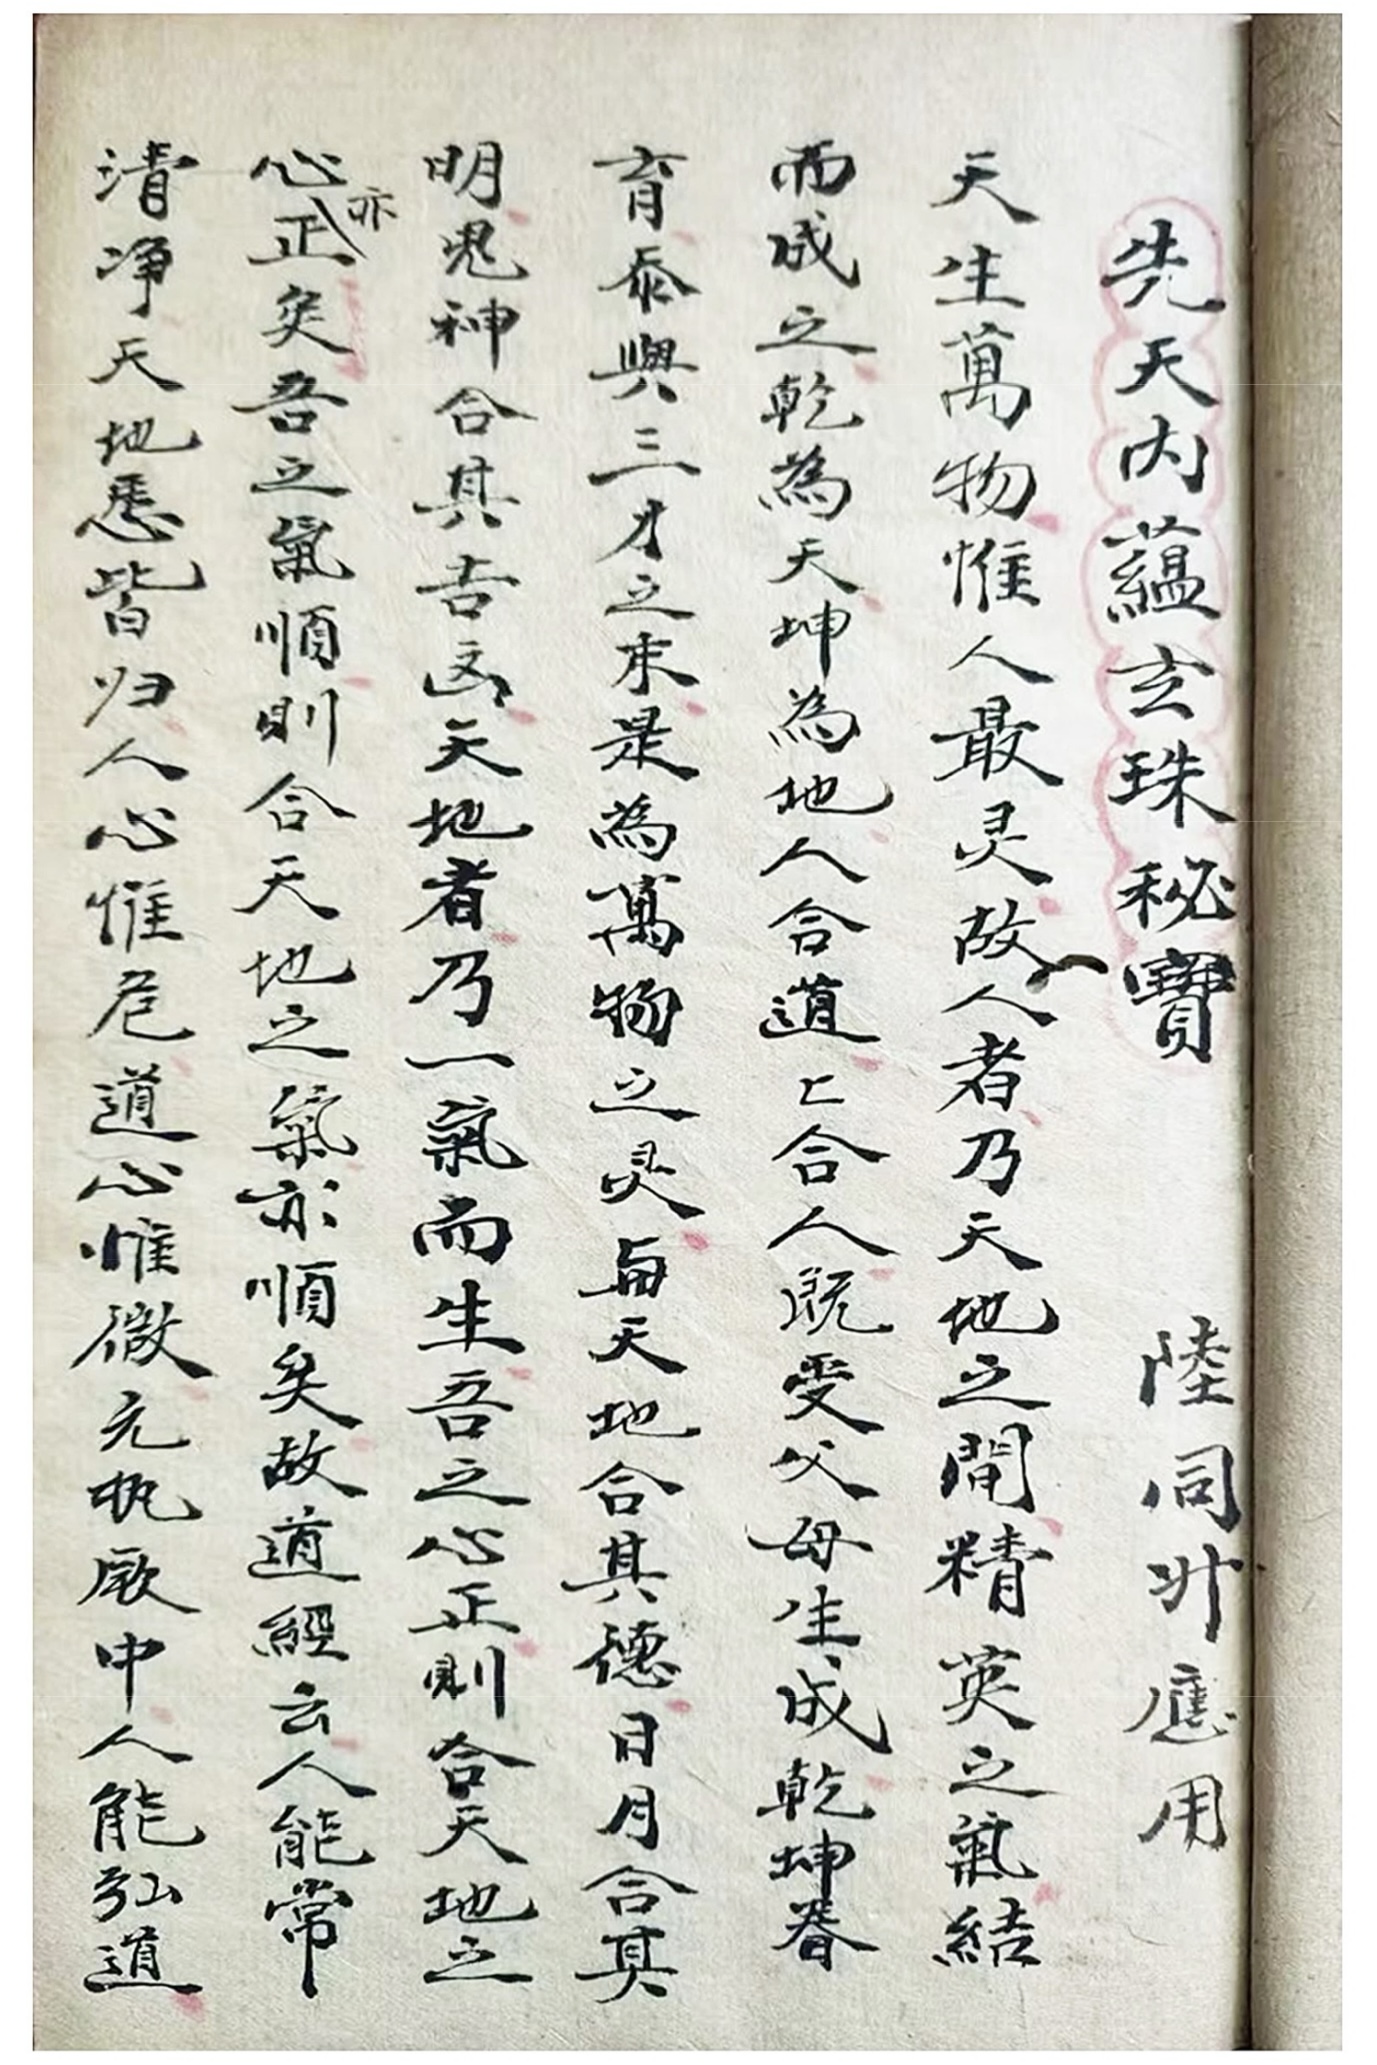 先天内蘊玄珠秘寶 陸同升應用
天生萬物惟人最灵故人者乃天地之間精英之氣結
而成之乾為天坤為地人合道〻合人既受父母生成乾坤眷
育泰與三才之末是為萬物之灵每天地合其德日月合其
明鬼神合其吉凶天地者乃一氣而生吾之心正則合天地之
心亦正矣吾之氣順則合天地之氣亦順矣故道經云人能常
清净天地悉皆归人心惟危道心惟微允执厥中人能弘道